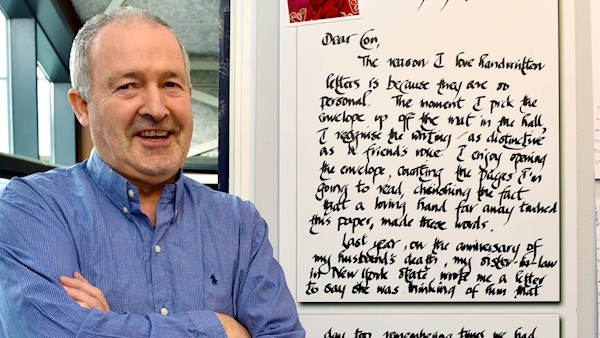 Dear Con,
The reason I love handwritten
letters is because they are so
personal. The moment I pick the
envelope up off the mat in the hall,
I recognise the writing - as distinctive
as a friend's voice. I enjoy opening
the envelope, counting the pages I'm
going to read, cherishing the fact
that a loving hand far away touched
this paper, made these words.
Last year, on the anniversary of
my husband's death, my sister-in-law
in New York State, wrote me a letter
to say she was thinking of him that
day too, remembering times we had